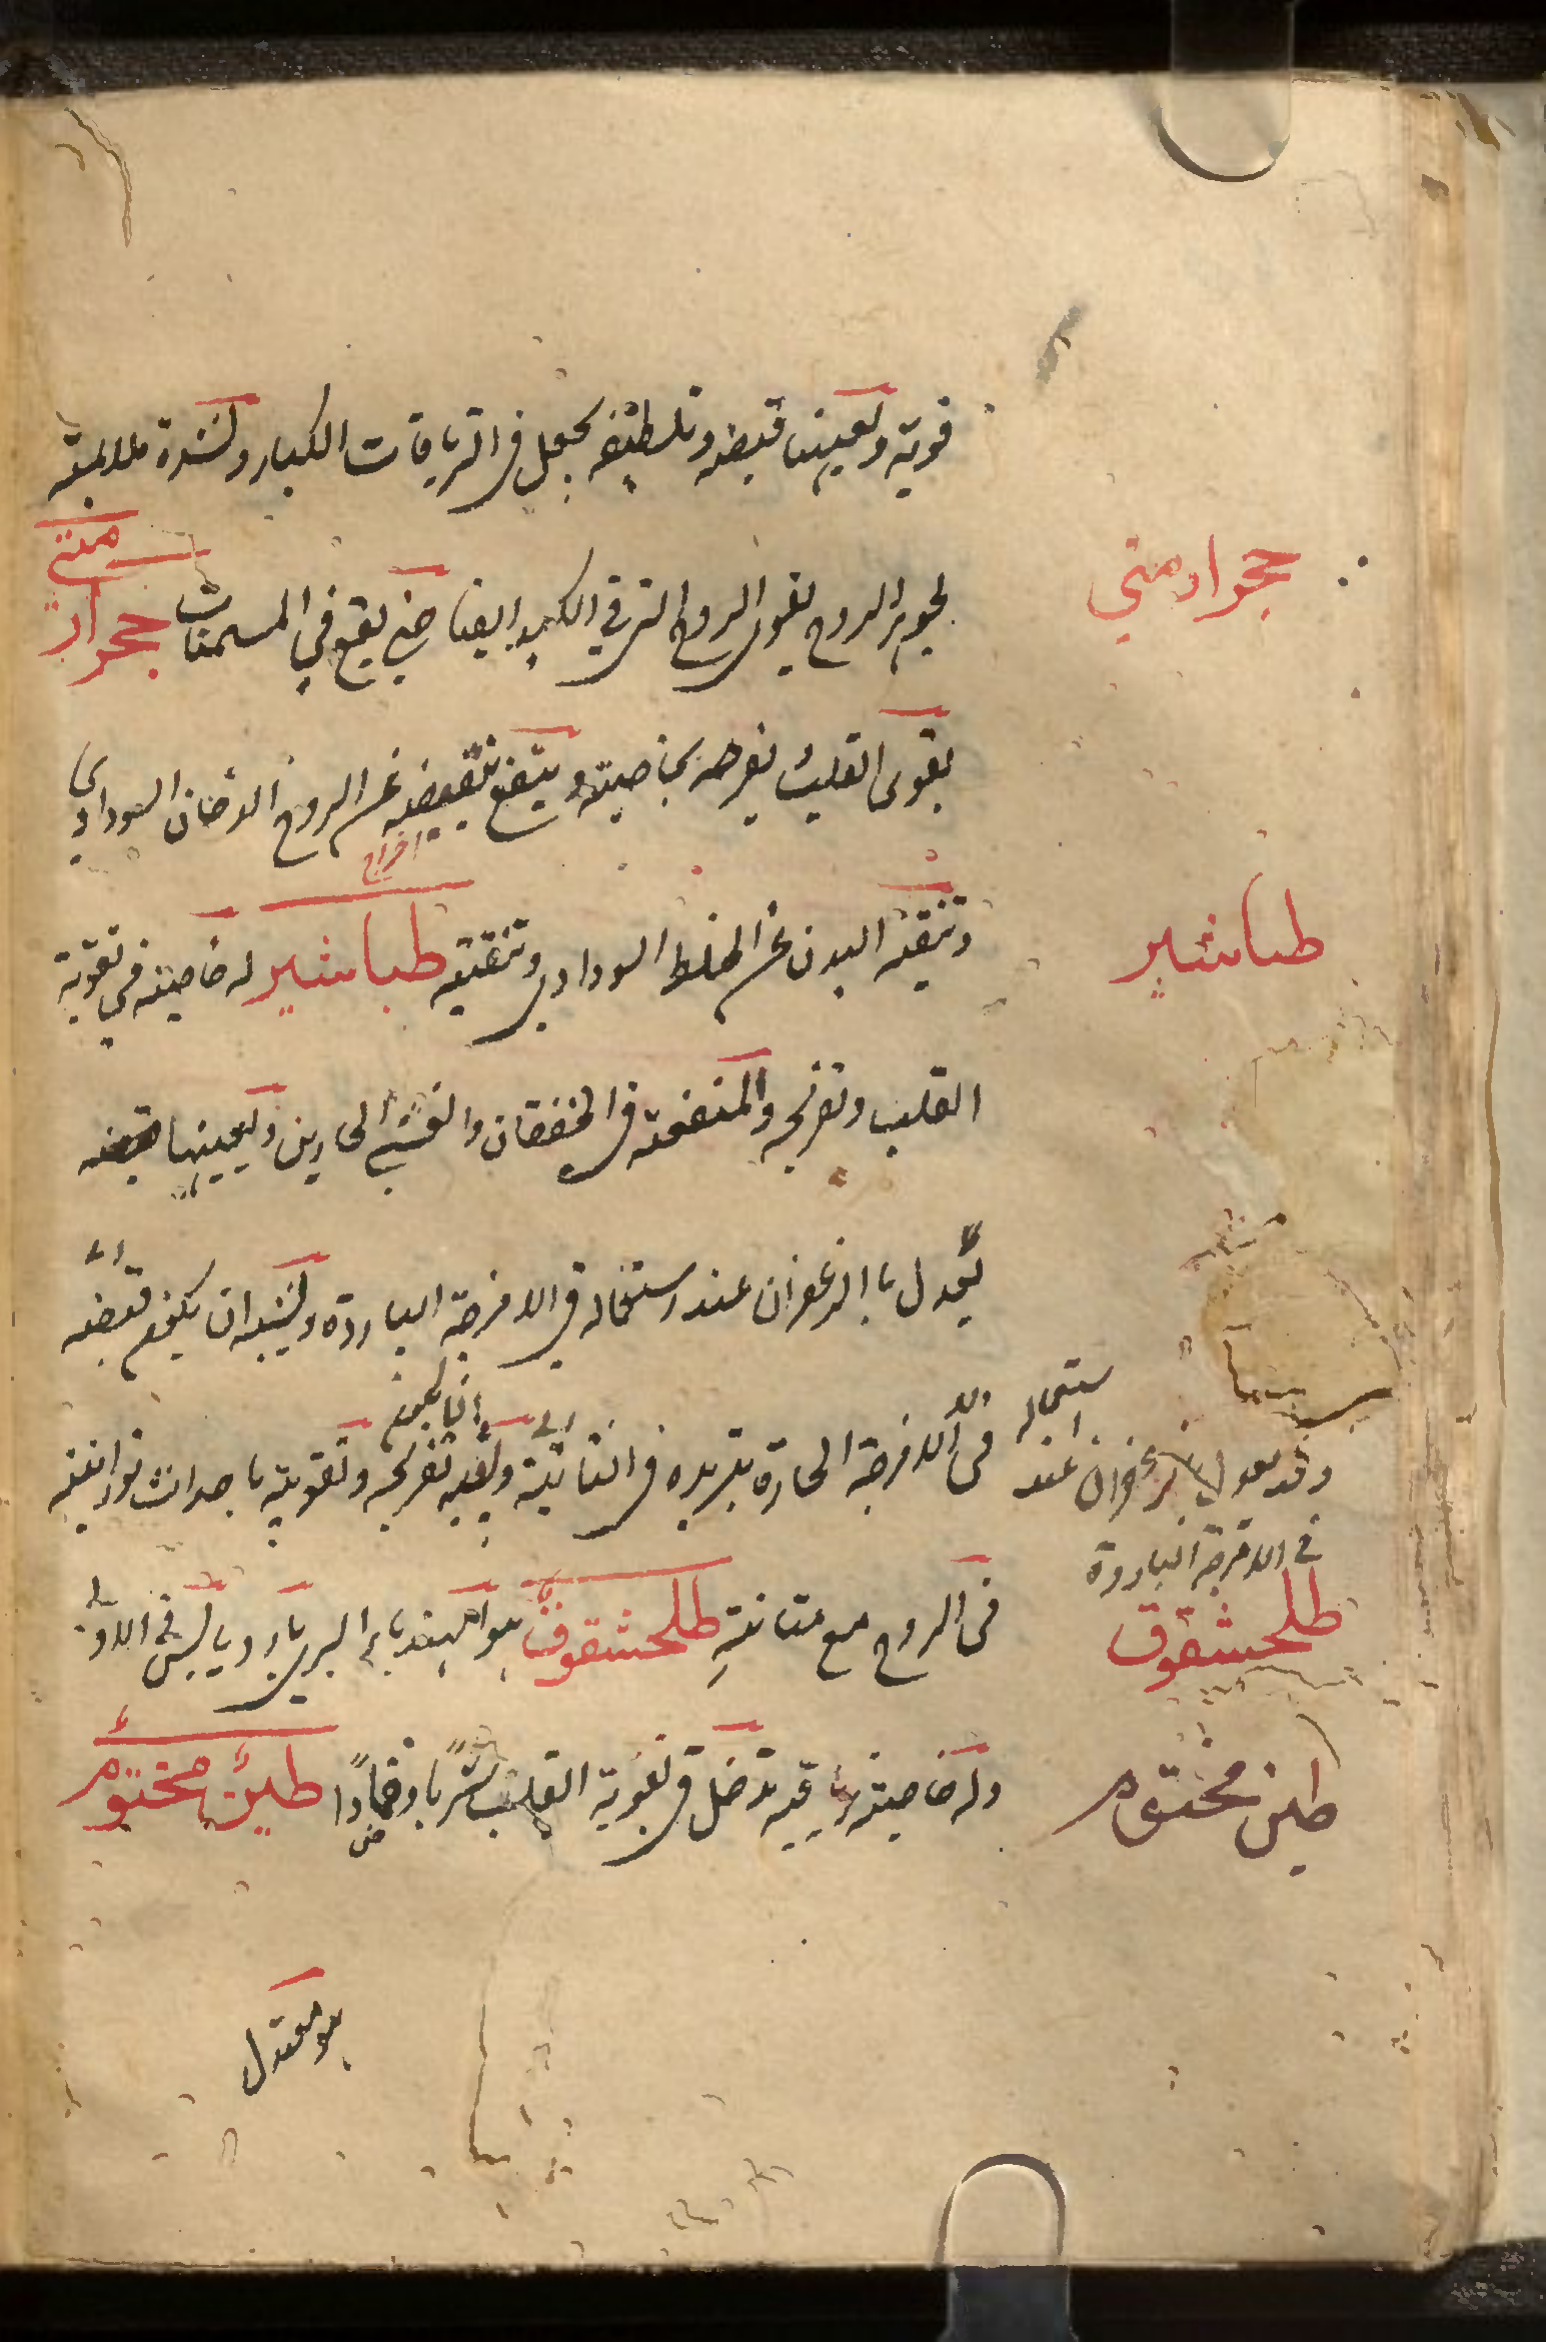 قوية ويعينها قبضه وتلطيفه يجعل في الترياقات الكبار ولشدة ملايمته
لجوهر الروح يقوي الروح التي في الكبد ايضا حتى يقع في المسمنات حجر ارمني
حجر ارمني
يقوي القلب يفرحه بخاصيته و ينفع بنفضه عن الروح الدخان السوداوي
اخراج
وتنقية البدن عن الخلط السوداوي وتنقيته طباشير له خاصية في تقوية
طباشير
القلب وتفريحه والمنفعة في الخفقان والغشي الحارين ويعينها قبضه
يعدل بالزعفران عند استعماله في الامزجة الباردة ويشبه ان يكون قبضه
في الامزجة الحارة تبريده في الثانية وتفريحه وتقويته باحداث نورانية
انما يكون
وقد يعدل بالزعفران عند استعماله
في الامزجة الباردة
في الروح مع متانة طلحشقوق هو الهندباء البري بارد يابس في الاولى
طلحشقوق
وله خاصية ترياقية تدخل في تقوية القلب شربا وضمادا طين مختوم
طين مختوم
هو معتدل